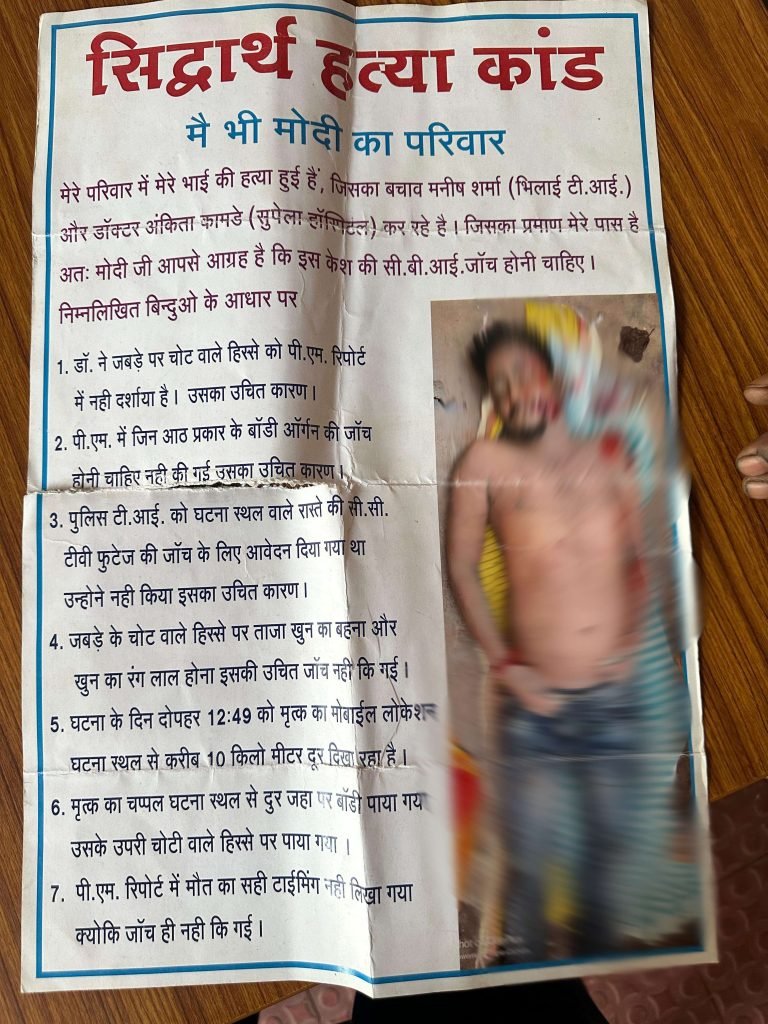 सिद्वार्थ हत्या कांड
मै भी मोदी का परिवार
मेरे परिवार में मेरे भाई की हत्या हुई हैं, जिसका बचाव मनीष शर्मा (भिलाई टी.आई.)
और डॉक्टर अंकिता कामडे (सुपेला हॉस्पिटल) कर रहे है। जिसका प्रमाण मेरे पास है
अतः मोदी जी आपसे आग्रह है कि इस केश की सी.बी.आई.जॉच होनी चाहिए।
निम्नलिखित बिन्दुओ के आधार पर
1. डॉ. ने जबड़े पर चोट वाले हिस्से को पी.एम. रिपोर्ट
में नही दर्शाया है। उसका उचित कारण।
2. पी.एम. में जिन आठ प्रकार के बॉडी ऑर्गन की जॉच
होनी चाहिए नही की गई उसका उचित कारण।
3. पुलिस टी.आई. को घटना स्थल वाले रास्ते की सी.सी.
टीवी फुटेज की जॉच के लिए आवेदन दिया गया था
उन्होने नही किया इसका उचित कारण।
4. जबड़े के चोट वाले हिस्से पर ताजा खुन का बहना और
खुन का रंग लाल होना इसकी उचित जॉच नही कि गई।
5. घटना के दिन दोपहर 12:49 को मृत्क का मोबाईल लोकेशन
घटना स्थल से करीब 10 किलो मीटर दूर दिखा रहा है।
6. मृत्क का चप्पल घटना स्थल से दुर जहा पर बॉडी पाया गया
उसके उपरी चोटी वाले हिस्से पर पाया गया।
7. पी.एम. रिपोर्ट में मौत का सही टाईमिंग नही लिखा गया
क्योकि जॉच ही नही कि गई।